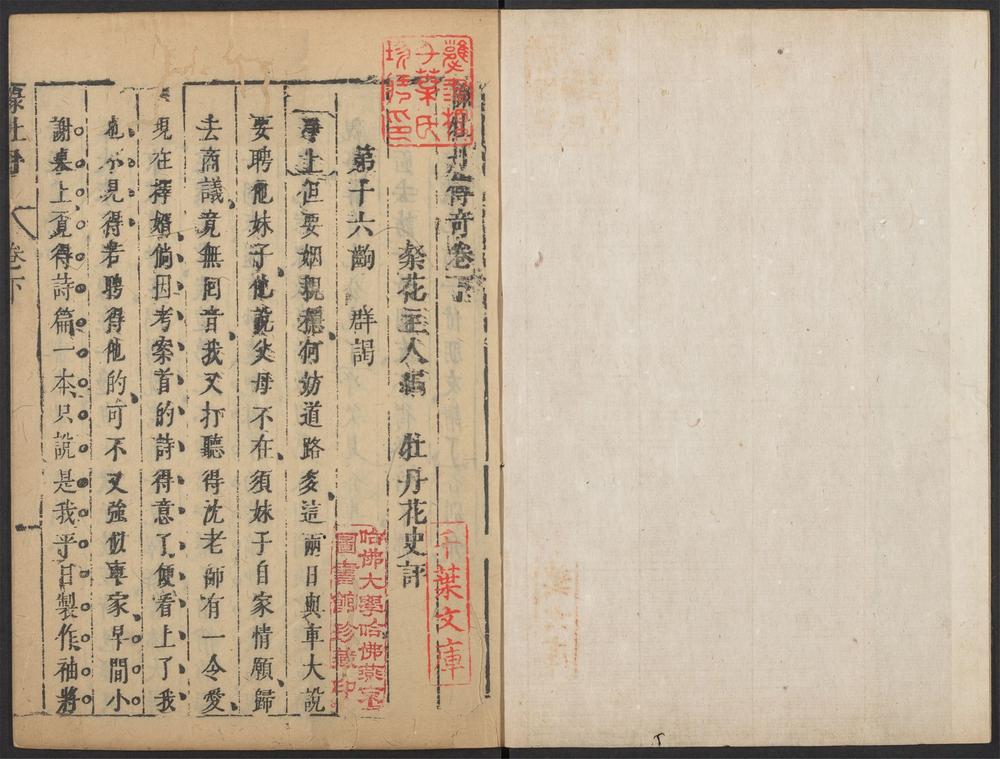 綠牡丹傳奇卷下
粲花主人編　牡丹花史評
第十六齣　群謁
淨上但要姻親穩何妨道路多這兩日與車大說
要聘他妹子他說父母不在須妹子自家情願歸
去商議竟無回音我又打聽得沈老師有一令愛
現在擇婿倘因考案首的詩得意了便看上了我
也不見得若聘得他的可不又強似車家早間小
謝桌上覓得詩篇一本只說是我平日製作袖將
綠牡丹
卷下
千葉文庫
哈佛大學哈佛燕京
圖書館珍藏印